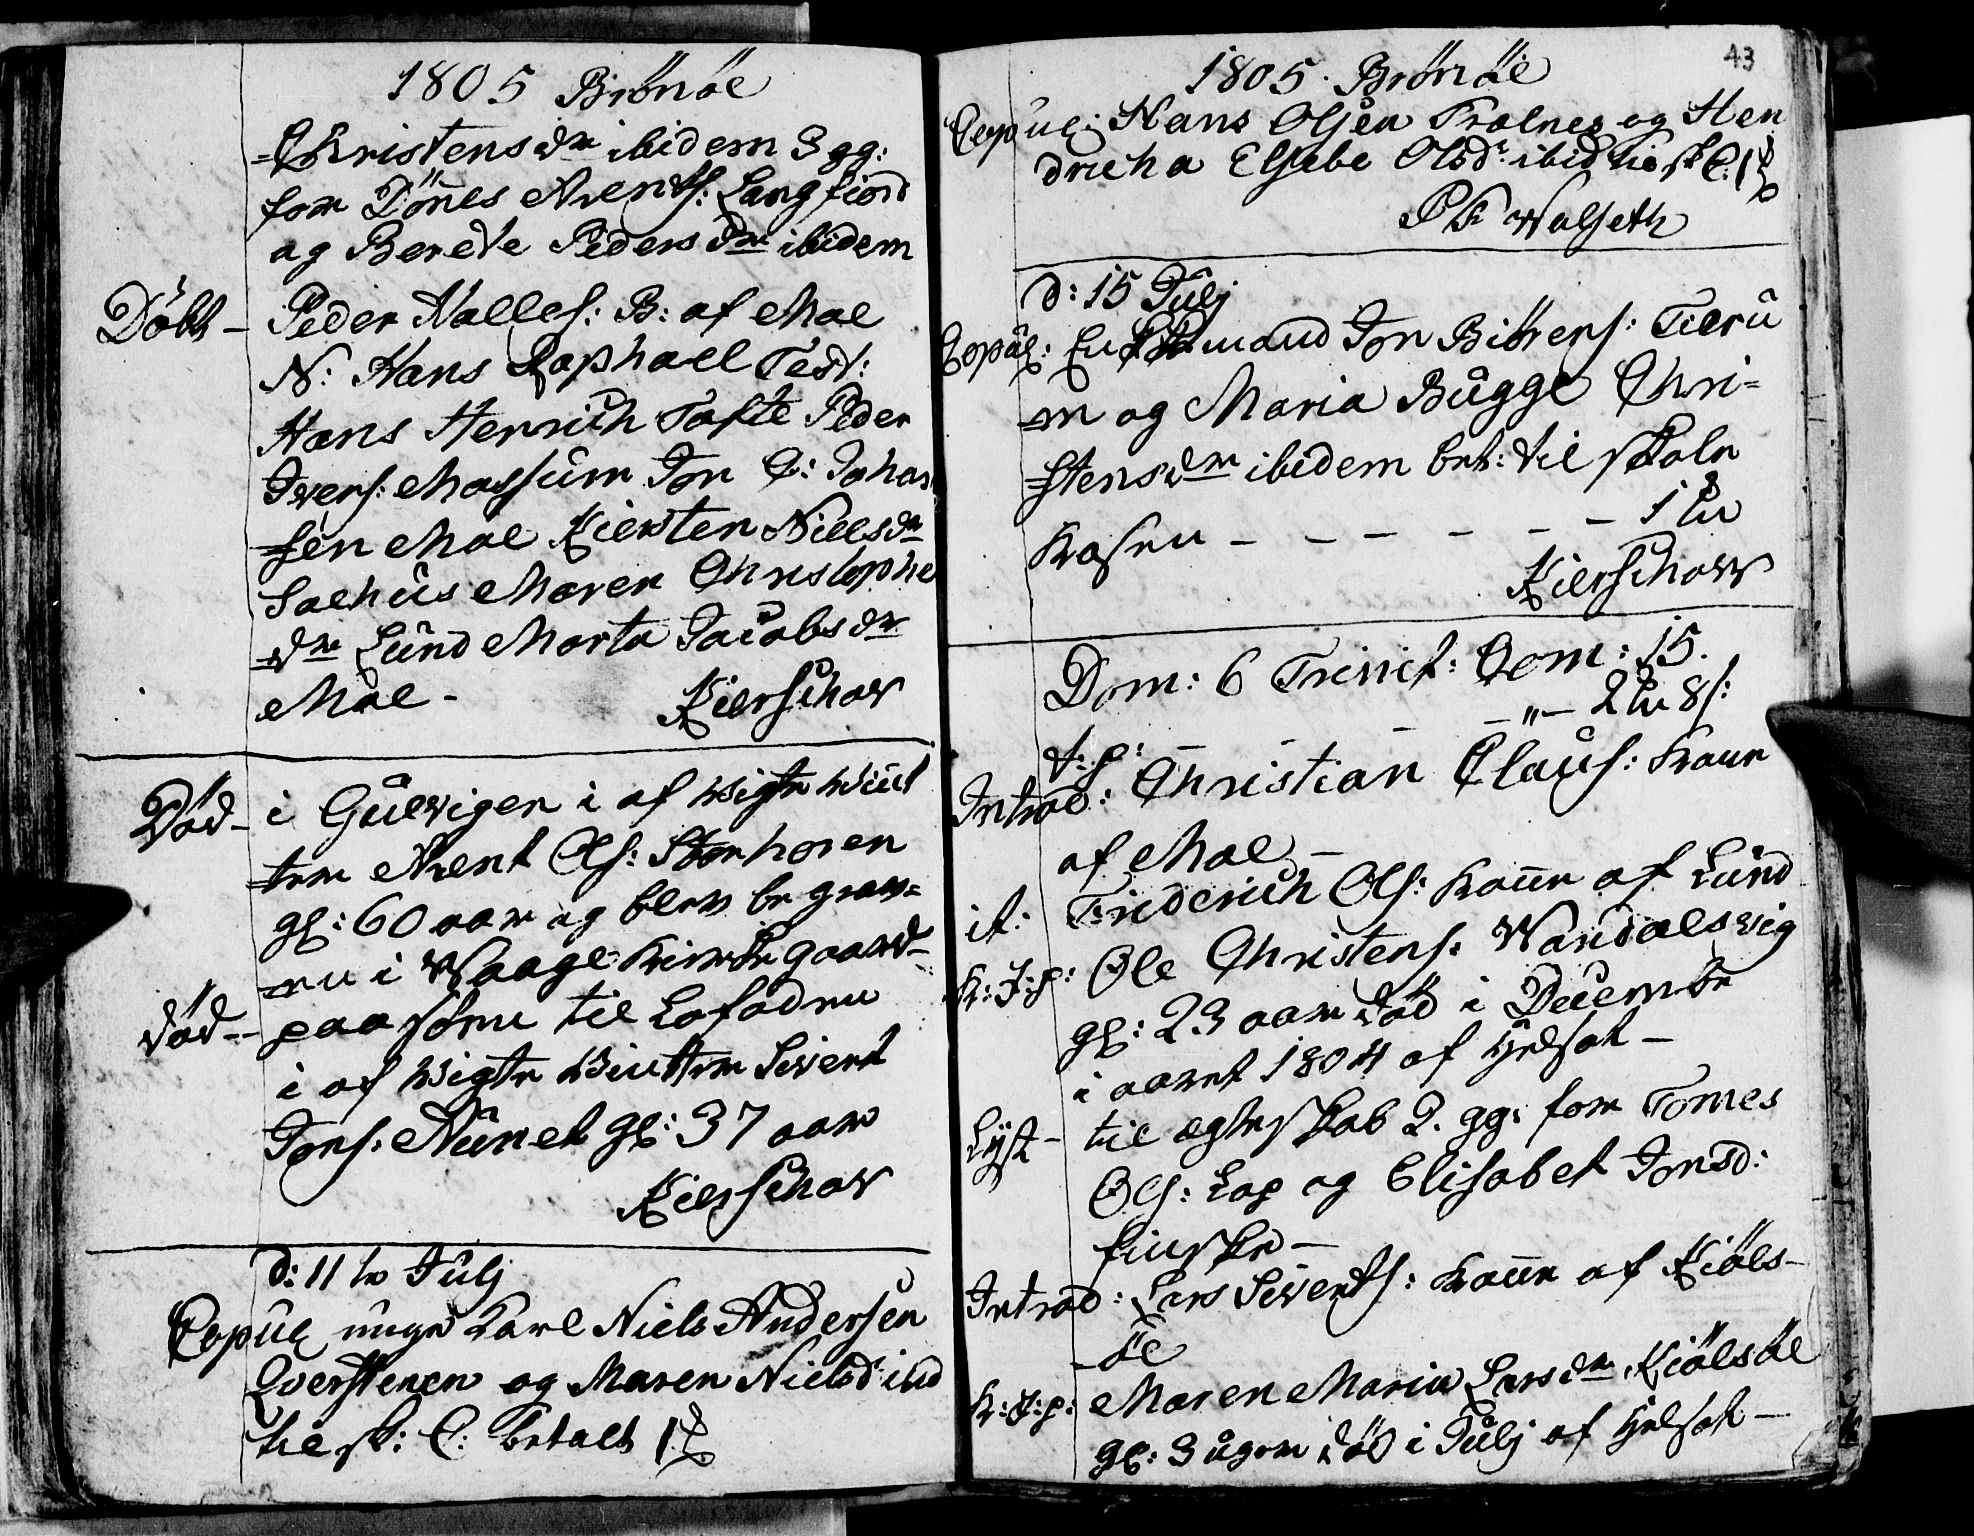 1805 Brönöe
=Christensdr ibidem 3 gg:
for Dönes Arentz: Langfiord
og Berete Pedersdr ibidem
Döbt – Peder Nalles: B: af Moe
N: Hans Raphael Test:
Hans Henrich Tofte Peder
Ivers: Mossum Jon C: Johan
=sen Moe Kiersten Nielsdr
Saehus Maren Christophe
=dr Lund Marta Jacobsdr
Moe – Kierschow
Död – i Gulvigen i af vigte vint
=ter Arent Ols: Storhoren
gl: 60 aar og blev begrav=
en i Waage Kirkegaard –
död – paa sörn til Lofoden
i af vigte Vintter Sivert
Jons: Nünet gl: 37 aar
Kierschow
d: 11te Julj
Copul unge Karl Niels Andersen
Qverstenen og Maren Nielsd: ibid
til sk: C: betalt 1
43
1805 Brönöe
Copul: Hans Olsen Trælnes og Hen
dricha Elsebe Olsdr: ibid til sk C: 1
P K Walseth
d: 15 Julj
Copul: Enkemand Jon Biörens: Tilru
m og Maria Bugge Chri=
=stensdr ibidem bet: til skole
Kassen – – – – – – 1
Kierschow
Dom: 6 Trinit: Com: 15.
t: p: – – – „ – 2 8 s:
Introd: Christian Claus: Kone
af Moe –
it: Friderich Ols: Kone af Lund
K: J: p: Ole Christens: Wandalsvig
gl: 23 aar död i Decembr
i aaret 1804 af
Lyst – til ægteskab 2. gg: for Tomes
Ols: Lap og Elisabet Jonsd:
finske –
Introd: Lars Siverts: Kone af Kiöls–
–öe
K: J: p: Maren Maria Larsdr Kiölsöe
gl: 3 uger död i Julj af